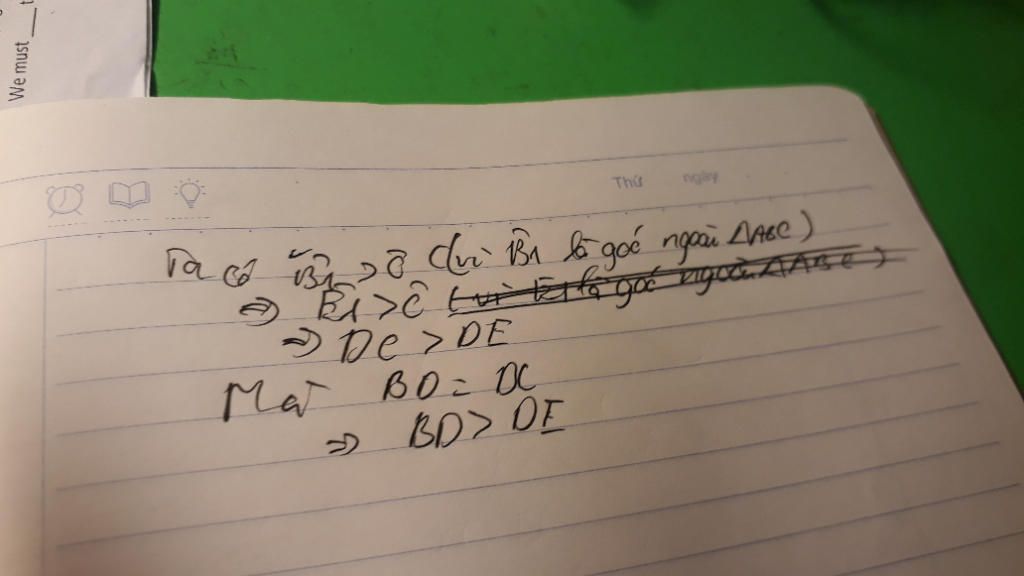 We must ___ t
Thứ ngày
Ta có B̂1 > Ĉ (vì B̂1 là góc ngoài ΔABC)
⇒ Ê1 > Ĉ (vì Ê1 là góc ngoài ΔABC)
⇒ DC > DE
Mà BD = DC
⇒ BD > DE